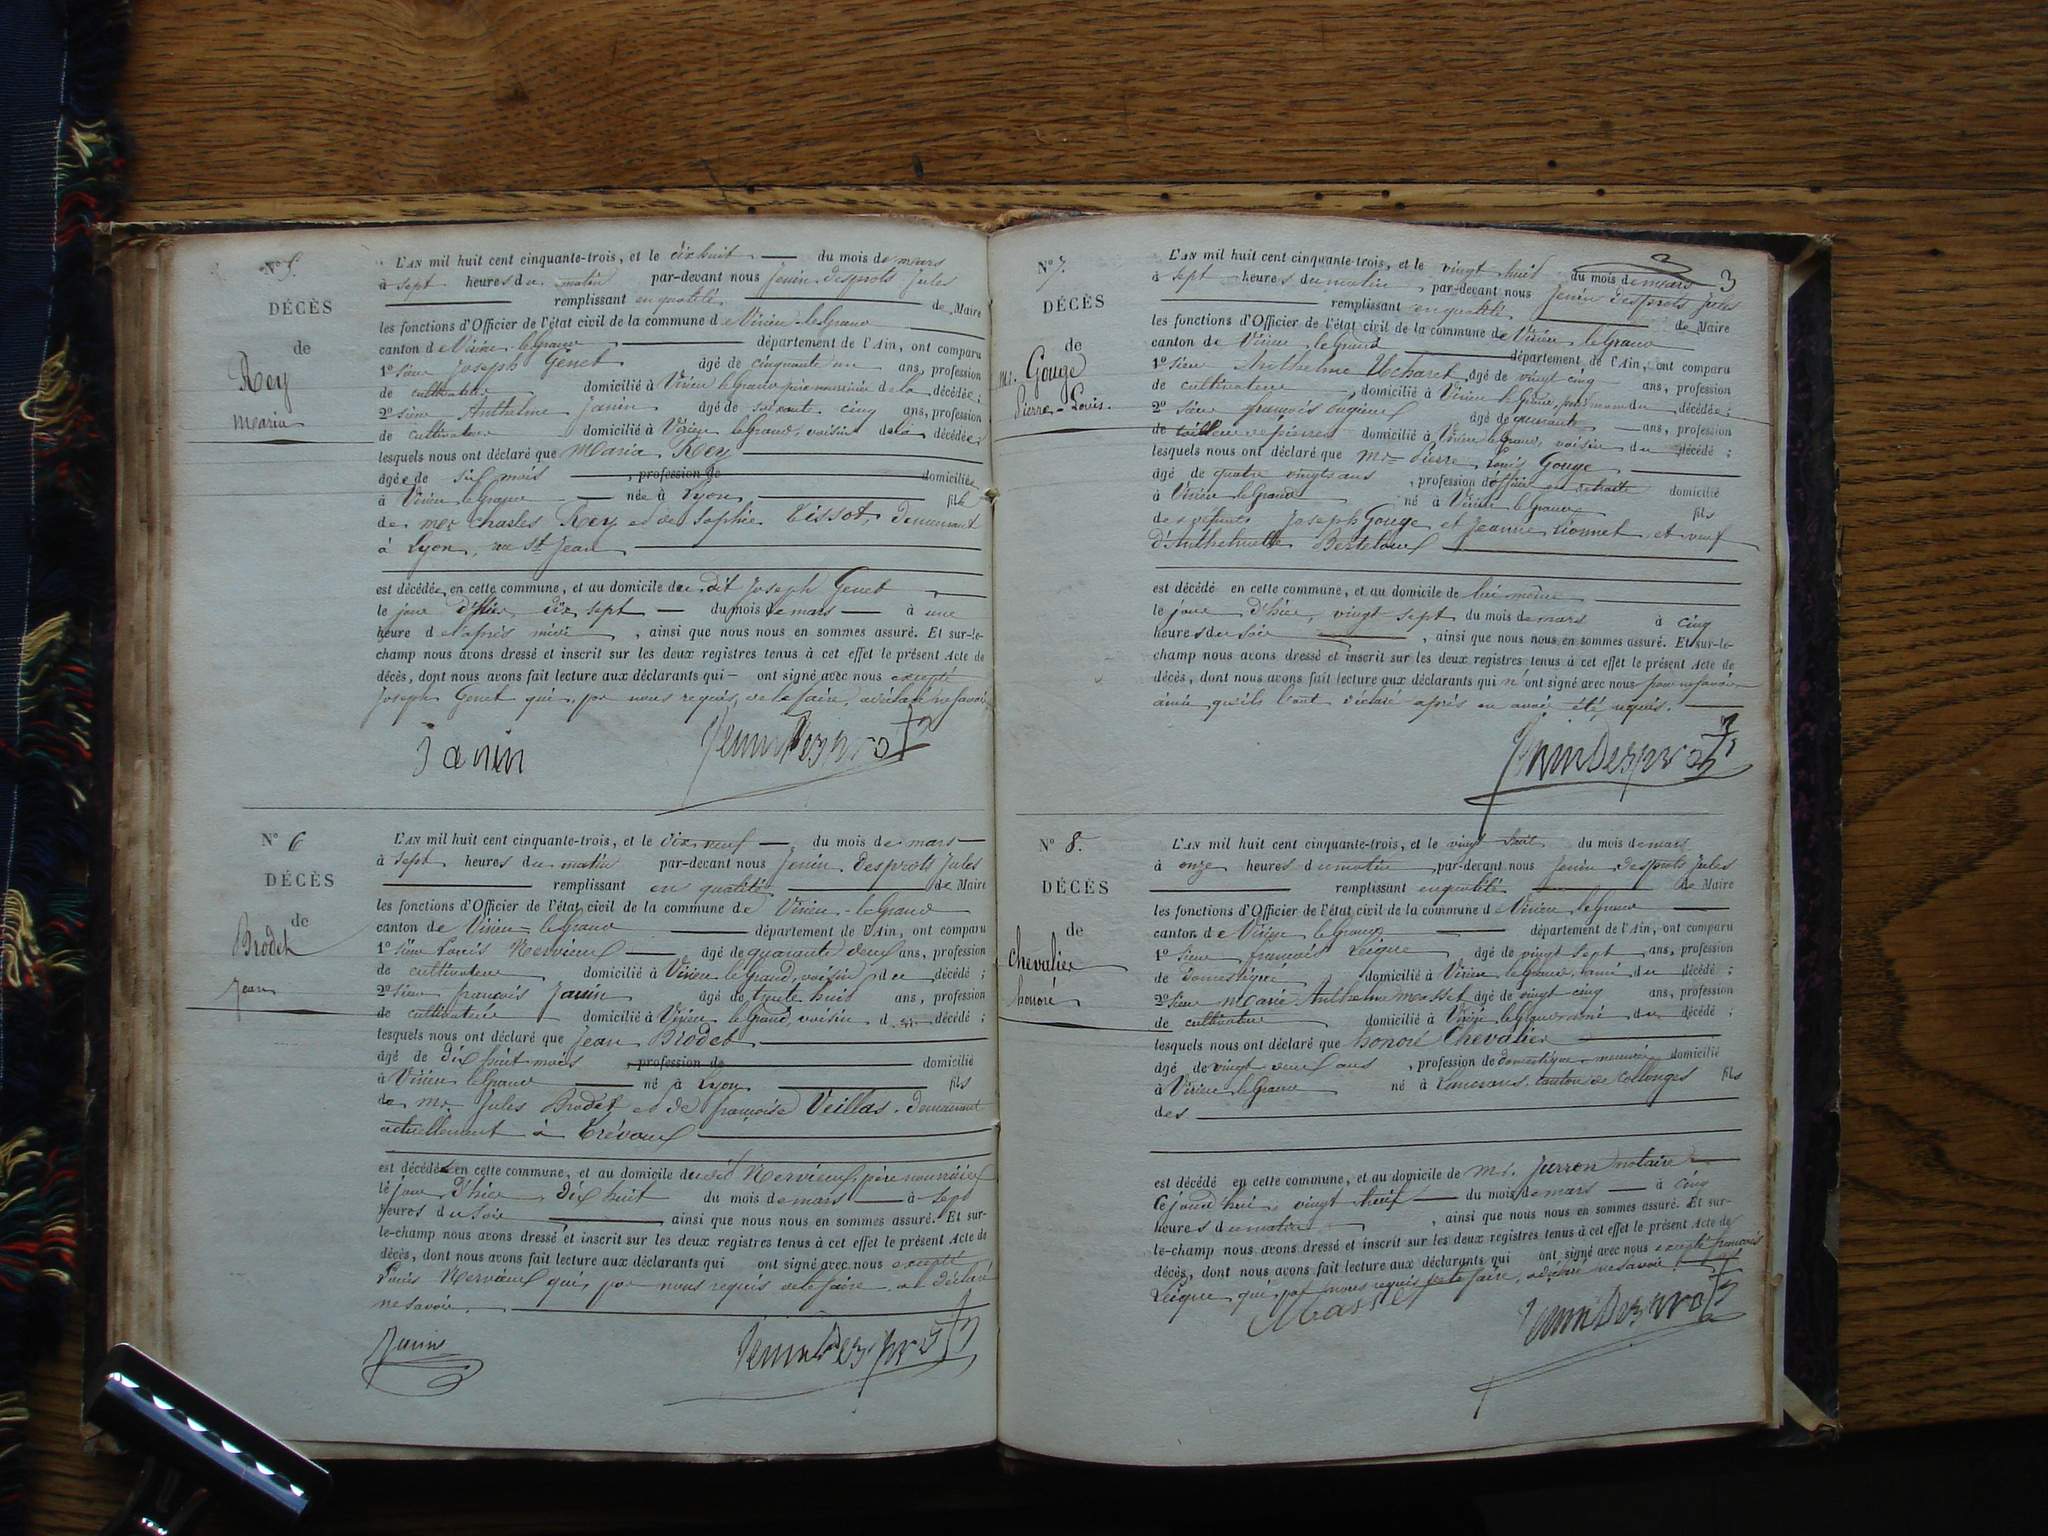 N° 5.
DÉCÈS
de
Rey
Maria
L'AN mil huit cent cinquante-trois, et le dix huit du mois de mars
à sept heures du matin par-devant nous Jenin Desprots Jules
remplissant en qualité de Maire
les fonctions d'Officier de l'état civil de la commune de Virieu-le-Grand
canton de Virieu-le-Grand département de l'Ain, ont comparu
1° sieur Joseph Genet âgé de cinquante un ans, profession
de cultivateur domicilié à Virieu le Grand père nourricier de la décédée;
2° sieur Anthelme Janin âgé de soixante cinq ans, profession
de cultivateur domicilié à Virieu le Grand, voisin de la décédée;
lesquels nous ont déclaré que Maria Rey
âgée de six mois profession de domiciliée
à Virieu le Grand née à Lyon fille
de mr Charles Rey et de Sophie Tissot, demeurant
à Lyon, rue St Jean
est décédée en cette commune, et au domicile du dit Joseph Genet
le jour d'hier dix sept du mois de mars à une
heure de l'après midi, ainsi que nous nous en sommes assuré. Et sur-le-
champ nous avons dressé et inscrit sur les deux registres tenus à cet effet le présent Acte de
décès, dont nous avons fait lecture aux déclarants qui ont signé avec nous excepté
Joseph Genet qui, par nous requis de le faire, a déclaré ne savoir
Janin JeninDesprots
N° 6
DÉCÈS
de
Brodet
Jean
L'AN mil huit cent cinquante-trois, et le dix neuf du mois de mars
à sept heures du matin par-devant nous Jenin Desprots Jules
remplissant en qualité de Maire
les fonctions d'Officier de l'état civil de la commune de Virieu-le-Grand
canton de Virieu-le-Grand département de l'Ain, ont comparu
1° sieur Louis Mervieux âgé de quarante deux ans, profession
de cultivateur domicilié à Virieu le Grand, voisin du décédé;
2° sieur françois Janin âgé de trente huit ans, profession
de cultivateur domicilié à Virieu le Grand, voisin du décédé;
lesquels nous ont déclaré que Jean Brodet
âgé de dix huit mois profession de domicilié
à Virieu le Grand né à Lyon fils
de mr Jules Brodet et de françoise Veillas, demeurant
actuellement à Trévoux
est décédé en cette commune, et au domicile du dit Mervieux, père nourricier
le jour d'hier dix huit du mois de mars à sept
heures du soir ainsi que nous nous en sommes assuré. Et sur-
le-champ nous avons dressé et inscrit sur les deux registres tenus à cet effet le présent Acte de
décès, dont nous avons fait lecture aux déclarants qui ont signé avec nous excepté
Louis Mervieux qui, par nous requis de le faire a déclaré
ne savoir.
Janin JeninDesprots
3
N° 7.
DÉCÈS
de
Mr. Gouge
Pierre-Louis.
L'AN mil huit cent cinquante-trois, et le vingt huit du mois de mars
à sept heures du matin, par-devant nous Jenin Desprots Jules
remplissant en qualité de Maire
les fonctions d'Officier de l'état civil de la commune de Virieu le Grand
canton de Virieu le Grand département de l'Ain, ont comparu
1° sieur Anthelme Ucharet âgé de vingt cinq ans, profession
de cultivateur, domicilié à Virieu le Grand, du décédé;
2° sieur françois âgé de quarante ans, profession
de tailleur de pierres domicilié à Virieu le Grand, voisin du décédé;
lesquels nous ont déclaré que Mr Pierre Louis Gouge
âgé de quatre vingts ans, profession d'officier en retraite domicilié
à Virieu le Grand né à Virieu le Grand fils
des défunts Joseph Gouge et Jeanne Lionnet, et veuf
d'Anthelmette Berteloux
est décédé en cette commune, et au domicile de lui même
le jour d'hier, vingt sept du mois de mars à cinq
heures du soir, ainsi que nous nous en sommes assuré. Et sur-le-
champ nous avons dressé et inscrit sur les deux registres tenus à cet effet le présent Acte de
décès, dont nous avons fait lecture aux déclarants qui n'ont signé avec nous pour ne savoir
ainsi qu'ils l'ont déclaré après en avoir été requis.
JeninDesprots
N° 8.
DÉCÈS
de
Chevalier
honoré
L'AN mil huit cent cinquante-trois, et le vingt huit du mois de mars
à onze heures du matin par-devant nous Jenin Desprots Jules
remplissant en qualité de Maire
les fonctions d'Officier de l'état civil de la commune de Virieu le Grand
canton de Virieu le Grand département de l'Ain, ont comparu
1° sieur françois Leique âgé de vingt sept ans, profession
de domestique domicilié à Virieu le Grand, ami du décédé;
2° sieur Marie Anthelme Masset âgé de vingt cinq ans, profession
de cultivateur domicilié à Virieu le Grand ami du décédé;
lesquels nous ont déclaré que honoré Chevalier
âgé de vingt deux ans, profession de domestique domicilié
à Virieu le Grand né à Lancrans, canton de Collonges fils
des
est décédé en cette commune, et au domicile de Mr. Jurron notaire
ce jourd'hui, vingt huit du mois de mars à cinq
heures du matin, ainsi que nous nous en sommes assuré. Et sur-
le-champ nous avons dressé et inscrit sur les deux registres tenus à cet effet le présent Acte de
décès, dont nous avons fait lecture aux déclarants qui ont signé avec nous excepté françois
Leique qui, par nous requis de le faire, a déclaré ne savoir.
Masset JeninDesprots